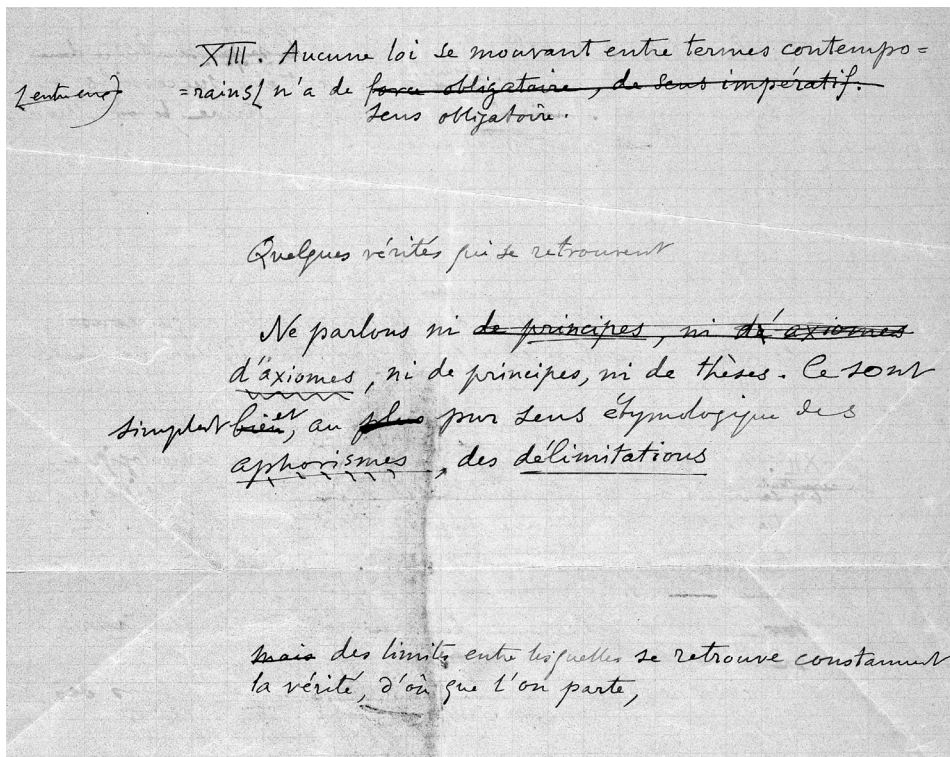 XIII. Aucune loi se mouvant entre termes contempo=
=rains[ n'a de force obligatoire, de sens impératif.
sens obligatoire.
Quelques vérités qui se retrouvent
Ne parlons ni de principes, ni d'axiomes
d'axiomes, ni de principes, ni de thèses. Ce sont
simplent bien et, au plus pur sens étymologique des
aphorismes, des délimitations
mais des limites entre lesquelles se retrouve constamment
la vérité, d'où que l'on parte,